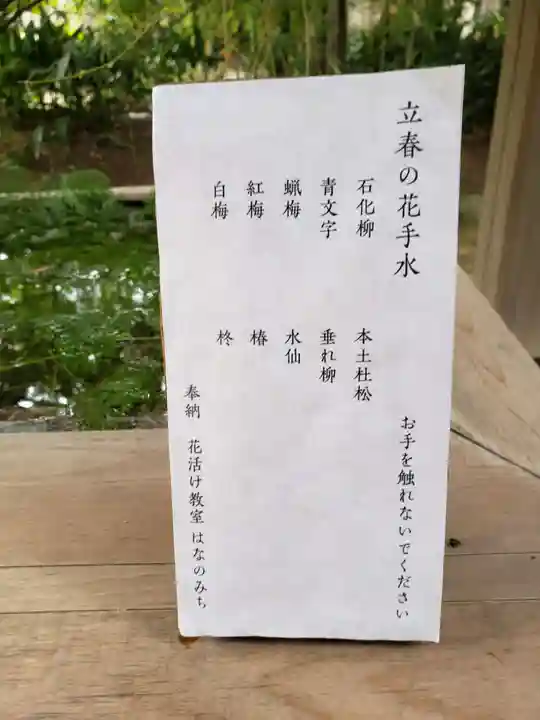 立春の花手水
お手を触れないでください
石化柳 本土杜松
青文字 垂れ柳
蝋梅 水仙
紅梅 椿
白梅 柊
奉納 花活け教室 はなのみち